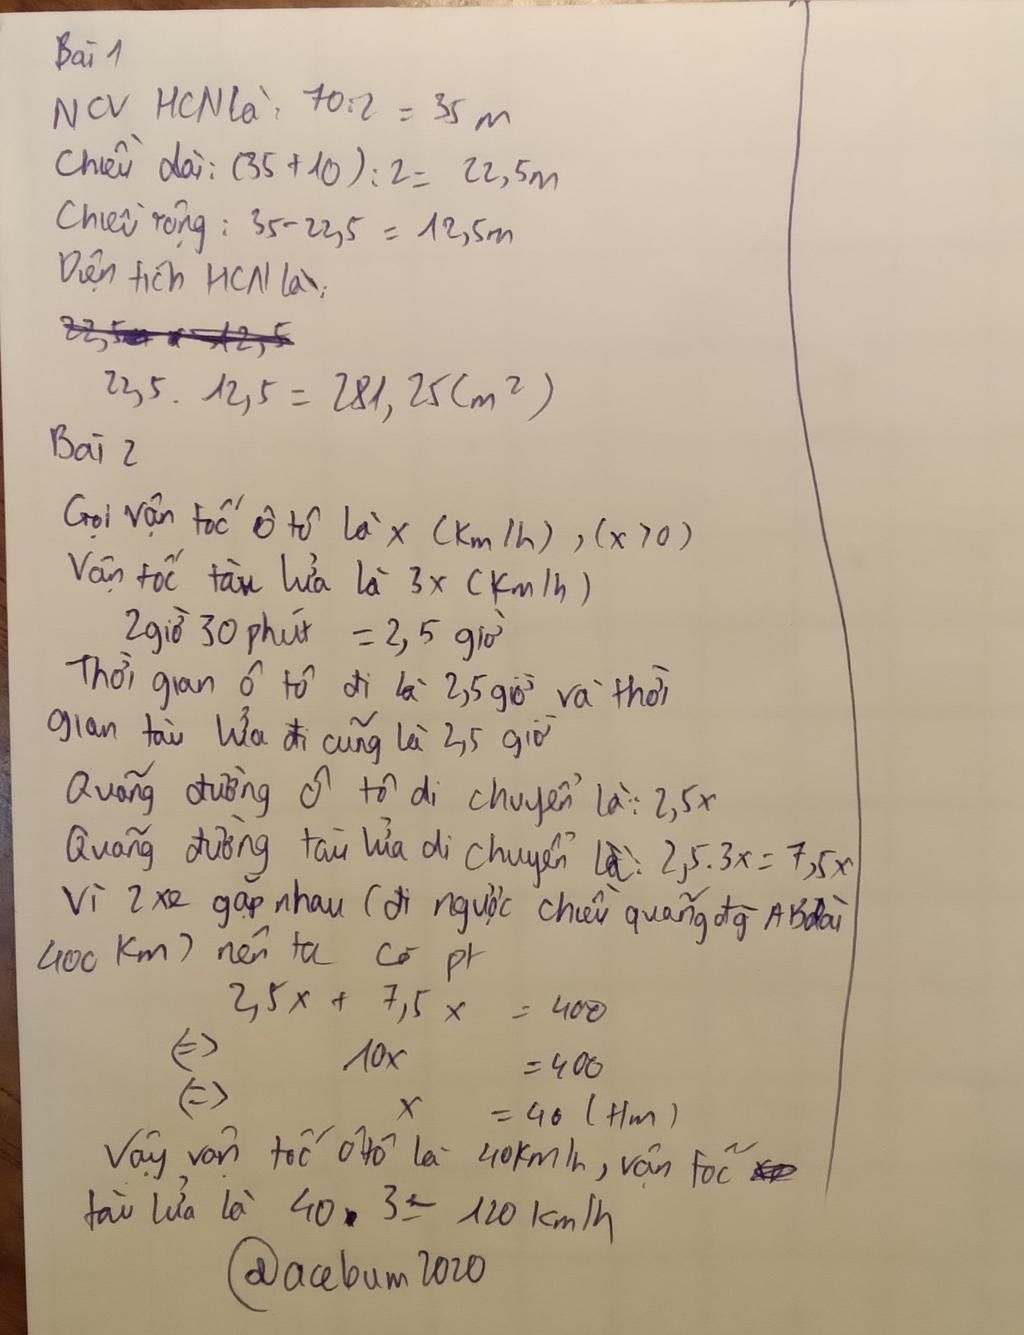 Bài 1
NCV HCN là: 70:2 = 35 m
Chiều dài: (35+10):2= 22,5m
Chiều rộng: 35-22,5 = 12,5m
Diện tích HCN là:
22,5m x 12,5
22,5. 12,5 = 281,25(m²)
Bài 2
Gọi vận tốc ô tô là x (Km/h), (x>0)
Vận tốc tàu lửa là 3x (Km/h)
2giờ 30 phút = 2,5 giờ
Thời gian ô tô đi là 2,5 giờ và thời
gian tàu lửa đi cũng là 2,5 giờ
Quãng đường ô tô di chuyển là: 2,5x
Quãng đường tàu lửa di chuyển là: 2,5.3x=7,5x
Vì 2 xe gặp nhau (đi ngược chiều quãng đg AB dài
400 Km) nên ta có pt
2,5x + 7,5x = 400
(=) 10x = 400
(=) x = 40 (tm)
Vậy vận tốc ôtô là 40km/h, vận tốc
tàu lửa là 40 . 3 = 120 km/h
@acebum2020